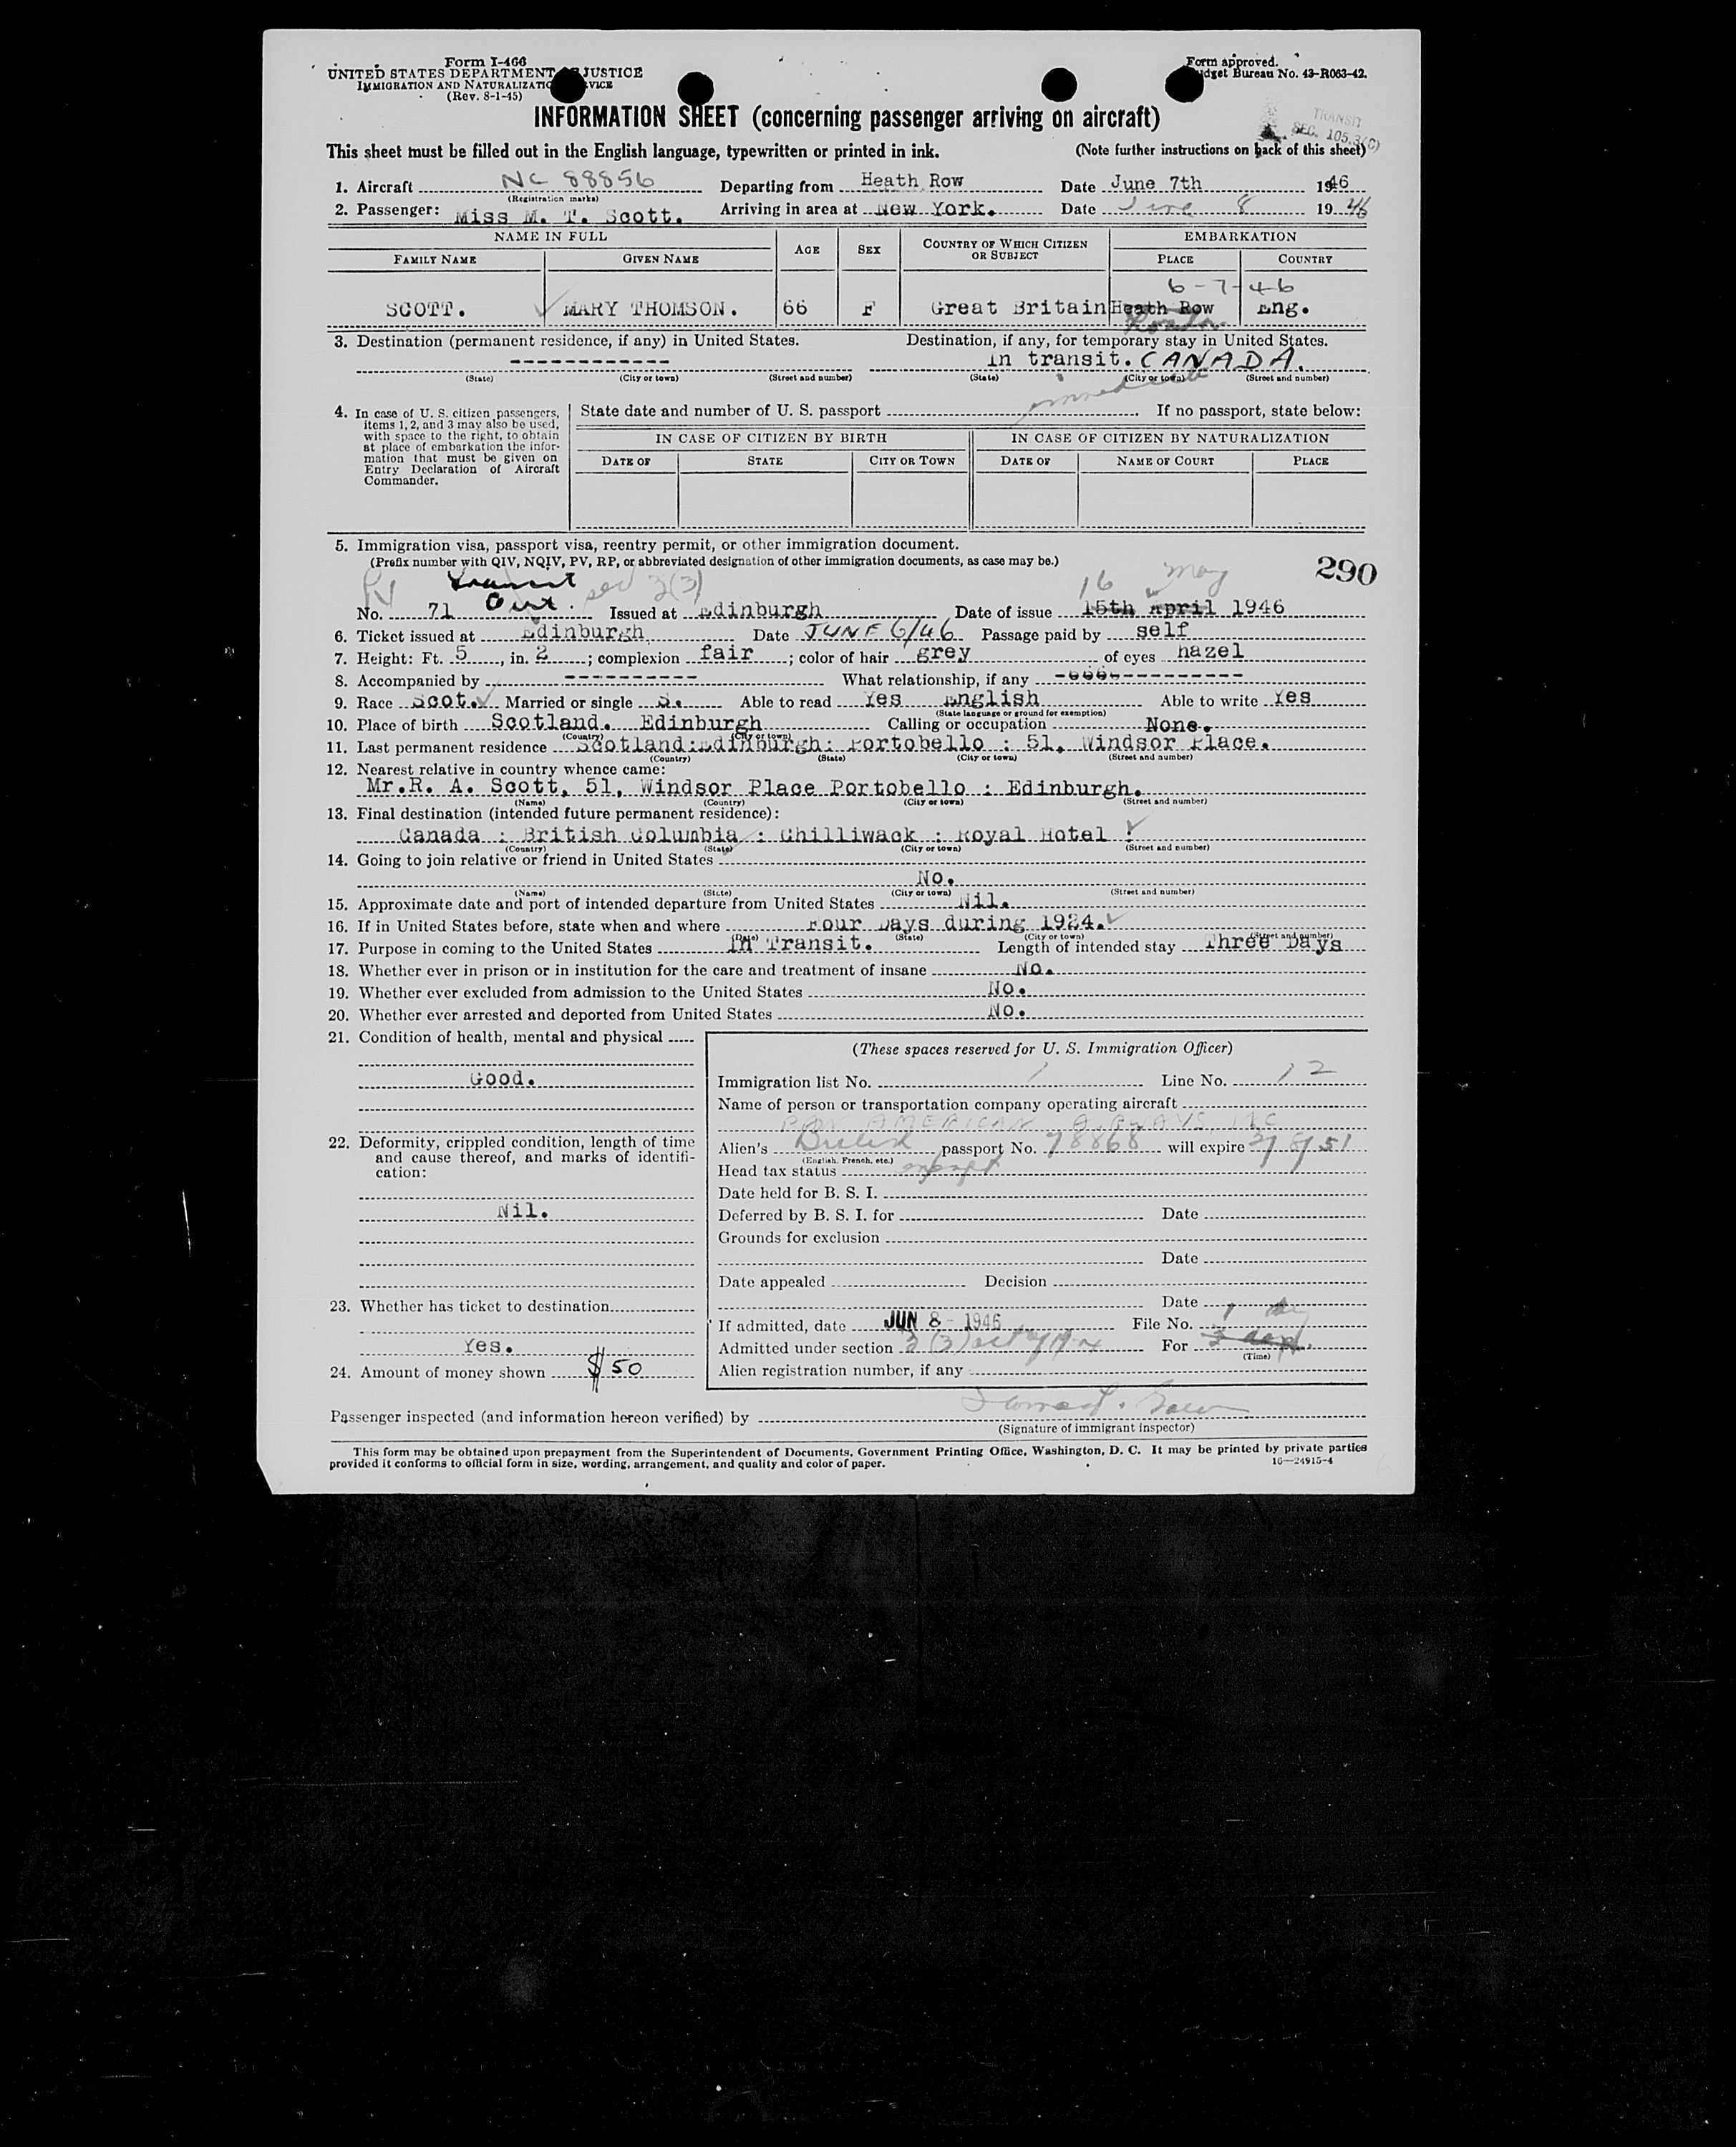 Form I-466
UNITED STATES DEPARTMENT JUSTICE
IMMIGRATION AND NATURALIZATIO VICE
(Rev. 8-1-45)
Form approved.
dget Bureau No. 43-R063-42.
INFORMATION SHEET (concerning passenger arriving on aircraft)
TRANSIT
SEC. 105.3(C)
This sheet must be filled out in the English language, typewritten or printed in ink. (Note further instructions on back of this sheet)
1. Aircraft NC 88856 Departing from Heath Row Date June 7th 1946
(Registration marks)
2. Passenger: Miss M. T. Scott. Arriving in area at New York. Date June 8 1946
NAME IN FULL AGE SEX COUNTRY OF WHICH CITIZEN OR SUBJECT EMBARKATION
FAMILY NAME GIVEN NAME PLACE COUNTRY
6-7-46
SCOTT. MARY THOMSON. 66 F Great Britain Heath Row Eng.
London
3. Destination (permanent residence, if any) in United States. Destination, if any, for temporary stay in United States.
------------ In transit. CANADA.
(State) (City or town) (Street and number) (State) (City or town) (Street and number)
immediate
4. In case of U. S. citizen passengers, items 1, 2, and 3 may also be used, with space to the right, to obtain at place of embarkation the information that must be given on Entry Declaration of Aircraft Commander.
State date and number of U. S. passport If no passport, state below:
IN CASE OF CITIZEN BY BIRTH IN CASE OF CITIZEN BY NATURALIZATION
DATE OF STATE CITY OR TOWN DATE OF NAME OF COURT PLACE
5. Immigration visa, passport visa, reentry permit, or other immigration document.
(Prefix number with QIV, NQIV, PV, RP, or abbreviated designation of other immigration documents, as case may be.)
290
PV Transit sec 3(3) 16 May
No. 71 Cert. Issued at Edinburgh Date of issue 15th April 1946
6. Ticket issued at Edinburgh Date JUNE 6/46 Passage paid by self
7. Height: Ft. 5, in. 2; complexion fair; color of hair grey of eyes hazel
8. Accompanied by ---------- What relationship, if any
9. Race Scot. Married or single S. Able to read Yes English Able to write Yes
(State language or ground for exemption)
10. Place of birth Scotland. Edinburgh Calling or occupation None.
(Country) (City or town)
11. Last permanent residence Scotland:Edinburgh: Portobello : 51, Windsor Place.
(Country) (State) (City or town) (Street and number)
12. Nearest relative in country whence came:
Mr.R. A. Scott, 51, Windsor Place Portobello : Edinburgh.
(Name) (Country) (City or town) (Street and number)
13. Final destination (intended future permanent residence):
Canada : British Columbia : Chilliwack : Royal Hotel :
(Country) (State) (City or town) (Street and number)
14. Going to join relative or friend in United States
No.
(Name) (State) (City or town) (Street and number)
15. Approximate date and port of intended departure from United States Nil.
16. If in United States before, state when and where Four Days during 1924.
(Date) (State) (City or town) (Street and number)
17. Purpose in coming to the United States In Transit. Length of intended stay Three Days
18. Whether ever in prison or in institution for the care and treatment of insane No.
19. Whether ever excluded from admission to the United States No.
20. Whether ever arrested and deported from United States No.
21. Condition of health, mental and physical
Good.
22. Deformity, crippled condition, length of time and cause thereof, and marks of identification:
Nil.
23. Whether has ticket to destination
Yes.
24. Amount of money shown $50
(These spaces reserved for U. S. Immigration Officer)
Immigration list No. 1 Line No. 12
Name of person or transportation company operating aircraft
PAN AMERICAN AIRWAYS, INC
Alien's British passport No. 78868 will expire 51
(English, French, etc.)
Head tax status exempt
Date held for B. S. I.
Deferred by B. S. I. for Date
Grounds for exclusion
Date
Date appealed Decision
Date
If admitted, date JUN 8 - 1946 File No.
Admitted under section 3 (3) For
(Time)
Alien registration number, if any
Passenger inspected (and information hereon verified) by
(Signature of immigrant inspector)
This form may be obtained upon prepayment from the Superintendent of Documents, Government Printing Office, Washington, D. C. It may be printed by private parties
provided it conforms to official form in size, wording, arrangement, and quality and color of paper. 16—24915-4